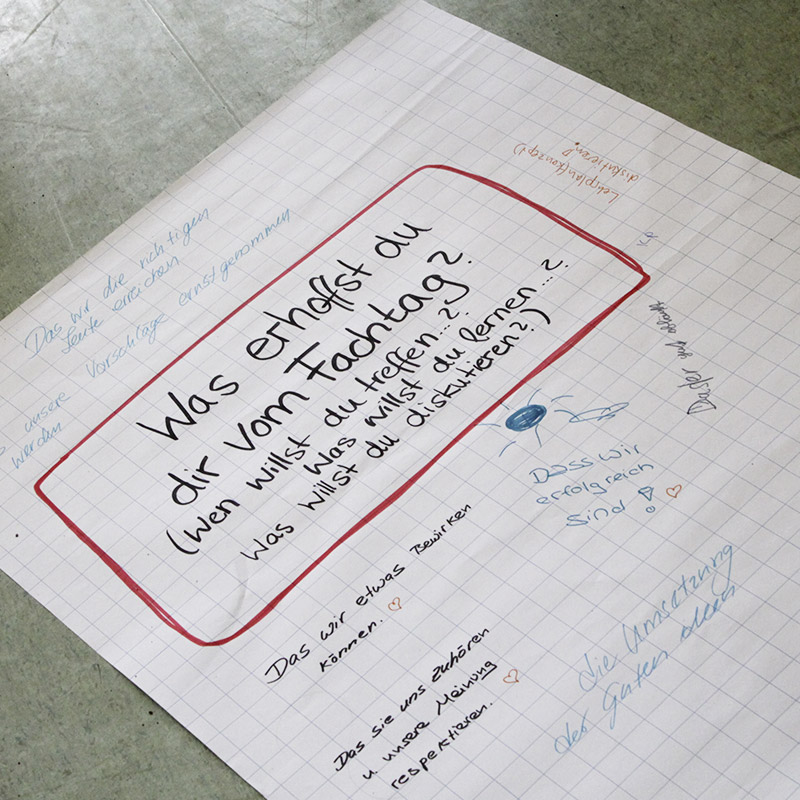 Was erhoffst du
dir vom Fachtag?
(Wen willst du treffen...?
Was willst du lernen...?
Was willst du diskutieren?)
Das wir die richtigen
Leute erreichen
unsere Vorschläge ernstgenommen
werden
Lehrplan(konzept)
diskutieren?
Dass wir
erfolgreich
sind!
Das wir etwas Bewirken
können.
Das sie uns zuhören
u. unsere Meinung
respektieren.
die Umsetzung
der Guten Ideen